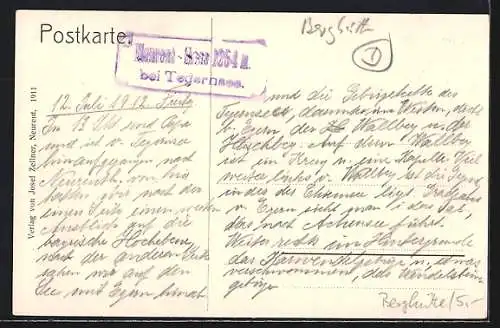 Postkarte
Berghütte
Neureut-Haus 1264 m.
bei Tegernsee.
Verlag von Josef Zellner, Neureut, 1911
12. Juli 1912
In 13 Std sind Papa
und ich v. Tegernsee
hinaufgegangen nach
Neureuth. Von hier
hatten wir nach der
einen Seite einen weiten
Ausblick auf die
bayrische Hochebene,
nach der anderen Seite
sahen wir auf den
See und Egern hinab
und die Gebirgskette des
Tegernsees, daneben im Westen, dicht
v. Egern, der Wallberg u. der
Hirschberg. Auf dem Wallberg
ist ein Kreuz u. eine Kapelle. Viel
weiter links v. Wallberg ist die
in des der liegt. Gradaus
v. Egern sieht man i. das Tal,
das nach Achensee führt.
Weiter rechts im Hintergrunde
das Karwendelgebirge u. etwas
verschwommen, das Wendelstein
gebirge
Berghütte/5,-